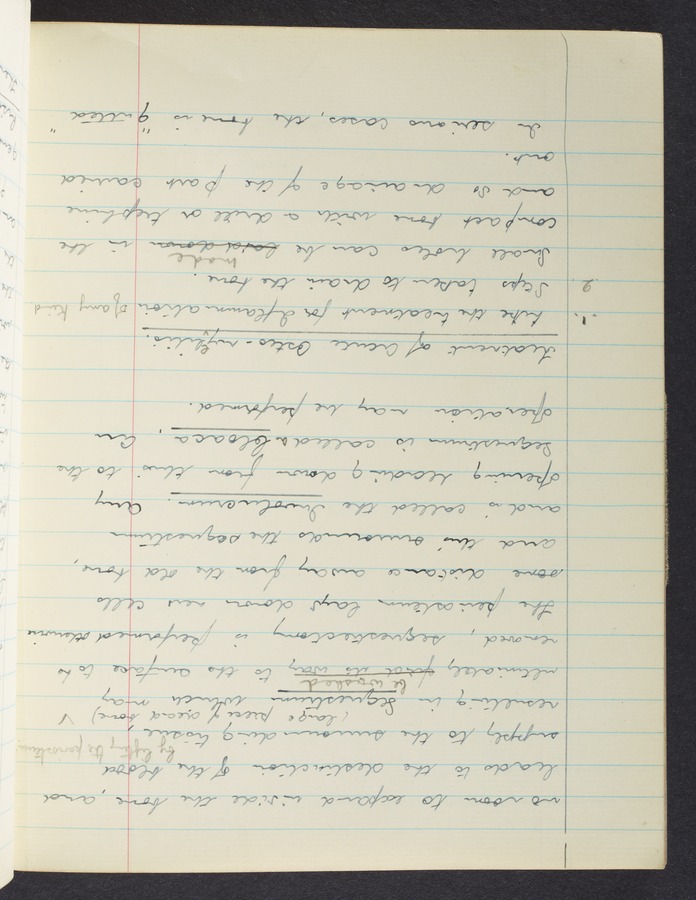 no room to expand inside the bone, and
leads to the destruction of the blood
by lifting the periosteum
supply to the surrounding tissue,
(large piece of dead bone) V
resulting in Sequestrum which may
be washed
ultimately find its way to the surface to be
removed, sequestrectomy is performed otherwise
the periosteum lays down new cells
some distance away from the old bone,
and this surrounds the sequestrum
and is called the Involucrum. Any
opening leading down from this to the
sequestrum is called a Cloaca, An
operation may be performed.
Treatment of Acute Osteo-myelitis.
1. Like the treatment for Inflammation of any kind
2. Steps taken to drain the bone.
made
Small holes can be laid down in the
compact bone with a drill or trephine
and so drainage of the part carried
out.
In serious cases, the bone is "guttered"